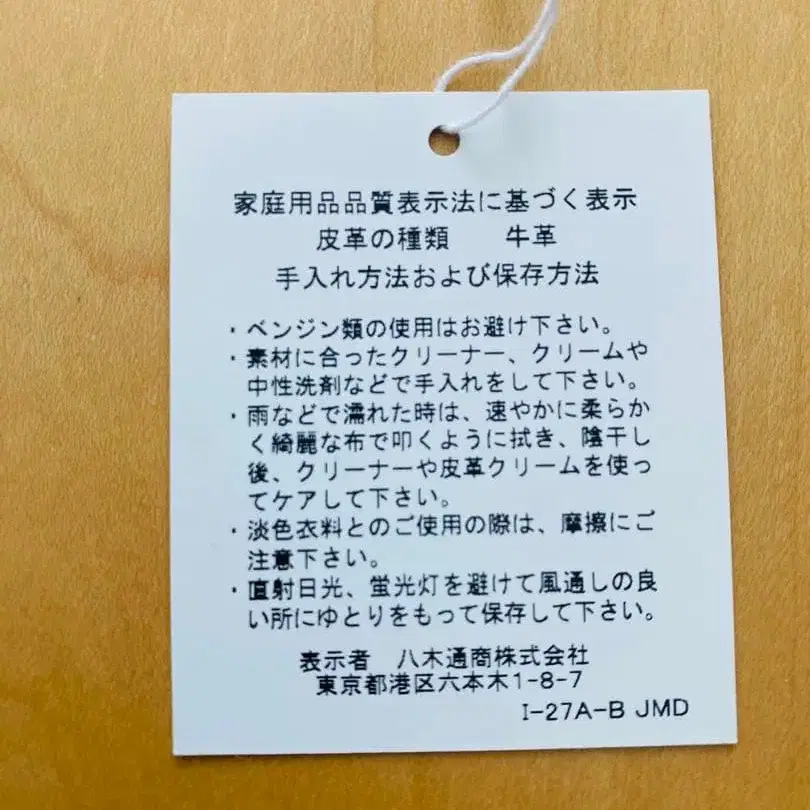 家庭用品品質表示法に基づく表示
皮革の種類　　牛革
手入れ方法および保存方法
・ベンジン類の使用はお避け下さい。
・素材に合ったクリーナー、クリームや
中性洗剤などで手入れをして下さい。
・雨などで濡れた時は、速やかに柔らか
く綺麗な布で叩くように拭き、陰干し
後、クリーナーや皮革クリームを使っ
てケアして下さい。
・淡色衣料とのご使用の際は、摩擦にご
注意下さい。
・直射日光、蛍光灯を避けて風通しの良
い所にゆとりをもって保存して下さい。
表示者　八木通商株式会社
東京都港区六本木1-8-7
I-27A-B JMD